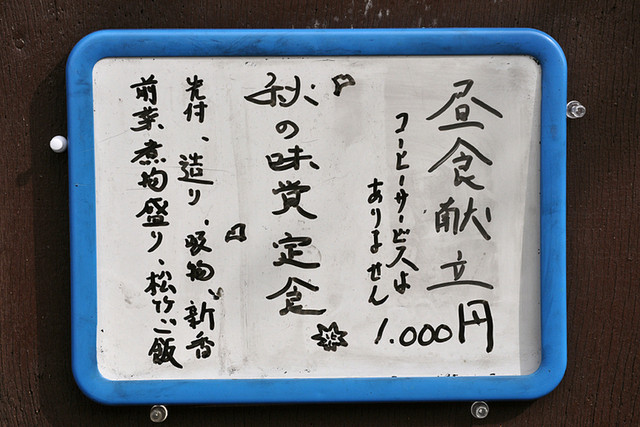 昼食献立
1.000円
コーヒーサービスは
ありません
秋の味賞定食
先付、造り、吸物、新香
前菜煮物盛り、松竹ご飯